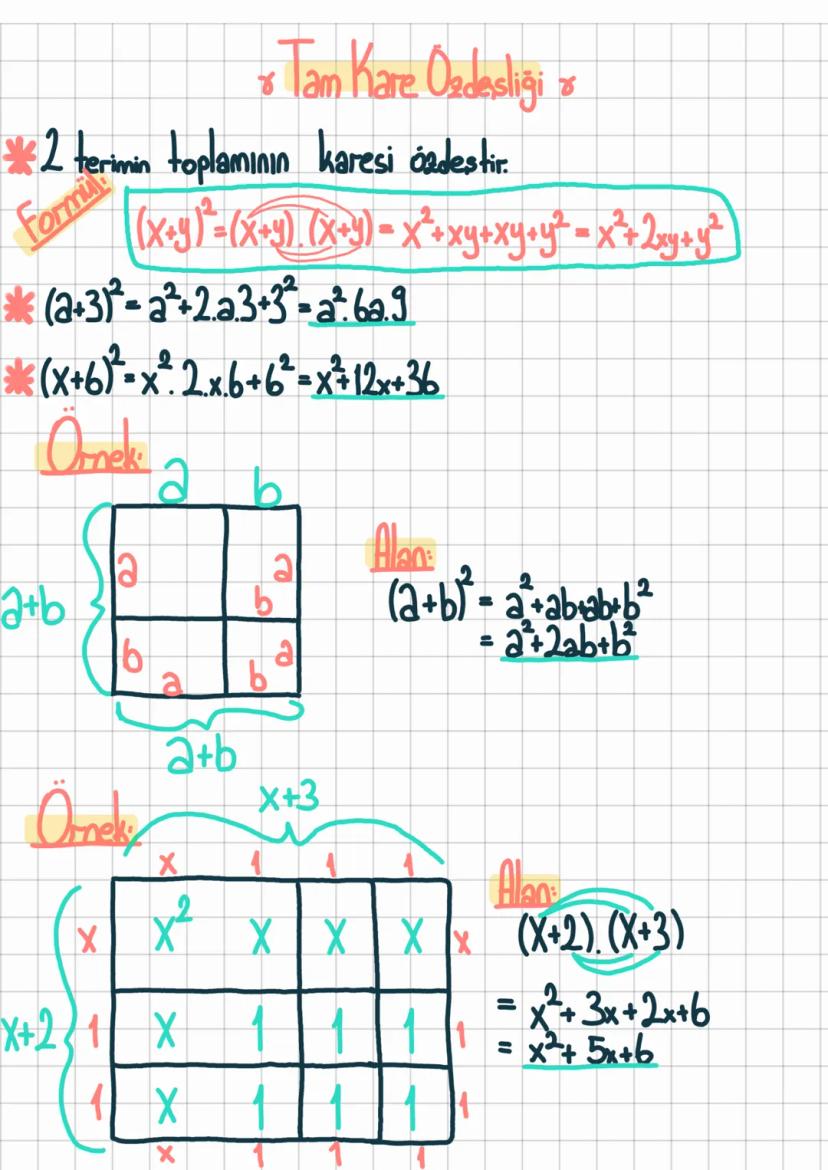 Tam Kare Özdeşliği
* 2 terimin toplamının karesi özdeştir.
Formül:
(x+y)² = (x+y).(x+y) = x²+xy+xy+y² = x²+2xy+y²
* (a+3)² = a²+2.a.3+3² = a².6a.9
* (x+6)² = x².2.x.6+6² = x²+12x+36
Örnek:
a b
a a
b
a+b
b a
a b
a+b
Alan:
(a+b)² = a²+ab+ab+b²
= a²+2ab+b²
Örnek:
x+3
x 1 1 1
x x² x x x x
x+2
1 x 1 1 1 1
1 x 1 1 1 1
x 1 1 1
Alan:
(x+2).(x+3)
= x²+3x+2x+6
= x²+5x+6